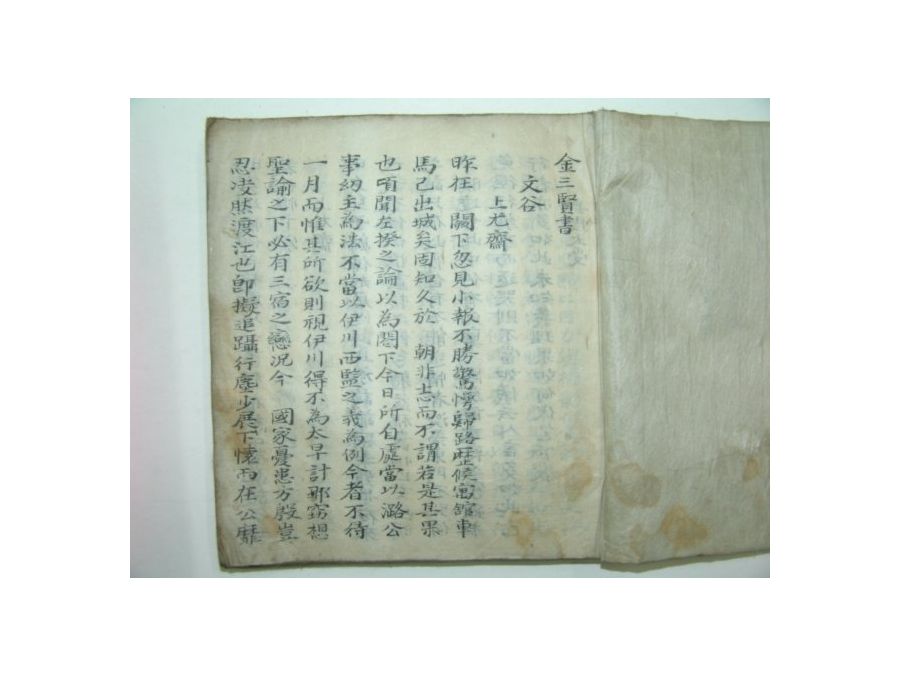 金三賢書
文谷
上尤齋
昨在 闕下忽見小報不勝驚愕歸路歷候寓舘車
馬已出城矣固知久於 朝非志而不謂若是其果
也頃聞左揆之論以為閤下今日所自處當以潞公
事幼主為法不當以伊川西監之義為例今者不待
一月而惟其所欲則視伊川得不為太早計耶窃想
聖諭之下必有三宿之戀況今 國家憂患方殷豈
忍凌然渡江也卽擬追躡行塵少展下懷而在公靡